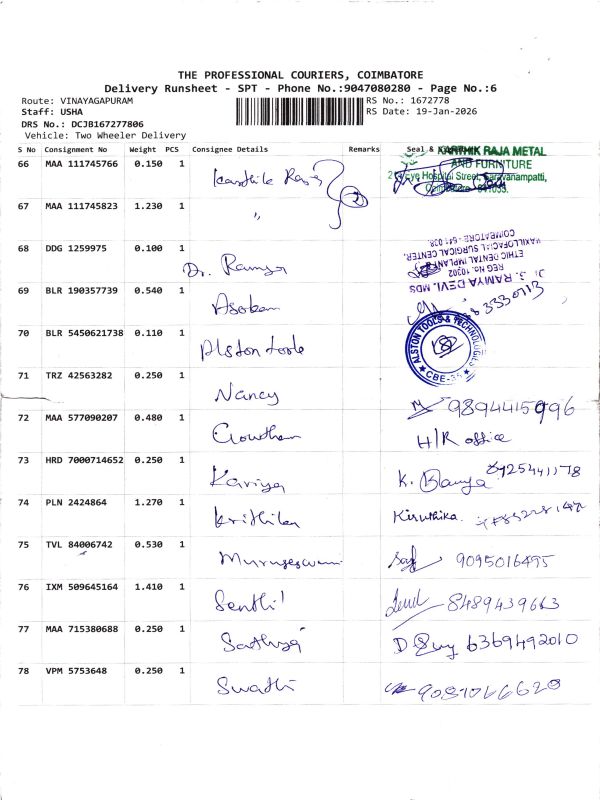 THE PROFESSIONAL COURIERS, COIMBATORE
Delivery Runsheet - SPT - Phone No.:9047080280 - Page No.:6
Route: VINAYAGAPURAM
RS No.: 1672778
Staff: USHA
RS Date: 19-Jan-2026
DRS No.: DCJB167277806
Vehicle: Two Wheeler Delivery
S No Consignment No Weight PCS Consignee Details Remarks Seal &
KARTHIK RAJA METAL
AND FURNITURE
Hospital Street, Saravanampatti,
Coimbatore - 641035.
66 MAA 111745766 0.150 1 Karthik Raja 2
67 MAA 111745823 1.230 1 "
68 DDG 1259975 0.100 1 Dr. Ramya
RAMYA DEVI. MDS
REG No. 10302
ETHIC DENTAL IMPLANT
MAXILLOFACIAL SURGICAL CENTER,
COIMBATORE - 641 035
69 BLR 190357739 0.540 1 Asokan
70 BLR 5450621738 0.110 1 Alston tools
ALSTON TOOLS & TECHNOLOGIES
CBE-35
71 TRZ 42563282 0.250 1 Nancy 9894415996
72 MAA 577090207 0.480 1 Gowtham H/R office
73 HRD 7000714652 0.250 1 Kaviya K.
74 PLN 2424864 1.270 1 Krithika Kiruthika
75 TVL 84006742 0.530 1 Murugeswari 9095016495
76 IXM 509645164 1.410 1 Senthil 8489439663
77 MAA 715380688 0.250 1 Sathya D 6369492010
78 VPM 5753648 0.250 1 Swathi